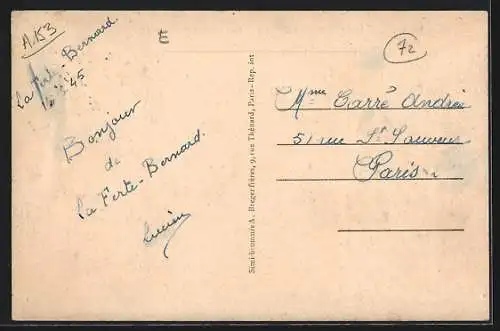 A153
La Ferté-Bernard
45
Bonjour
de
La Ferté-Bernard.
Lucien
E
72
Semi-bromure A. Breger frères, 9, rue Thénard, Paris-Rep. int
Mme Carré Andrée
51 rue St Sauveur
Paris